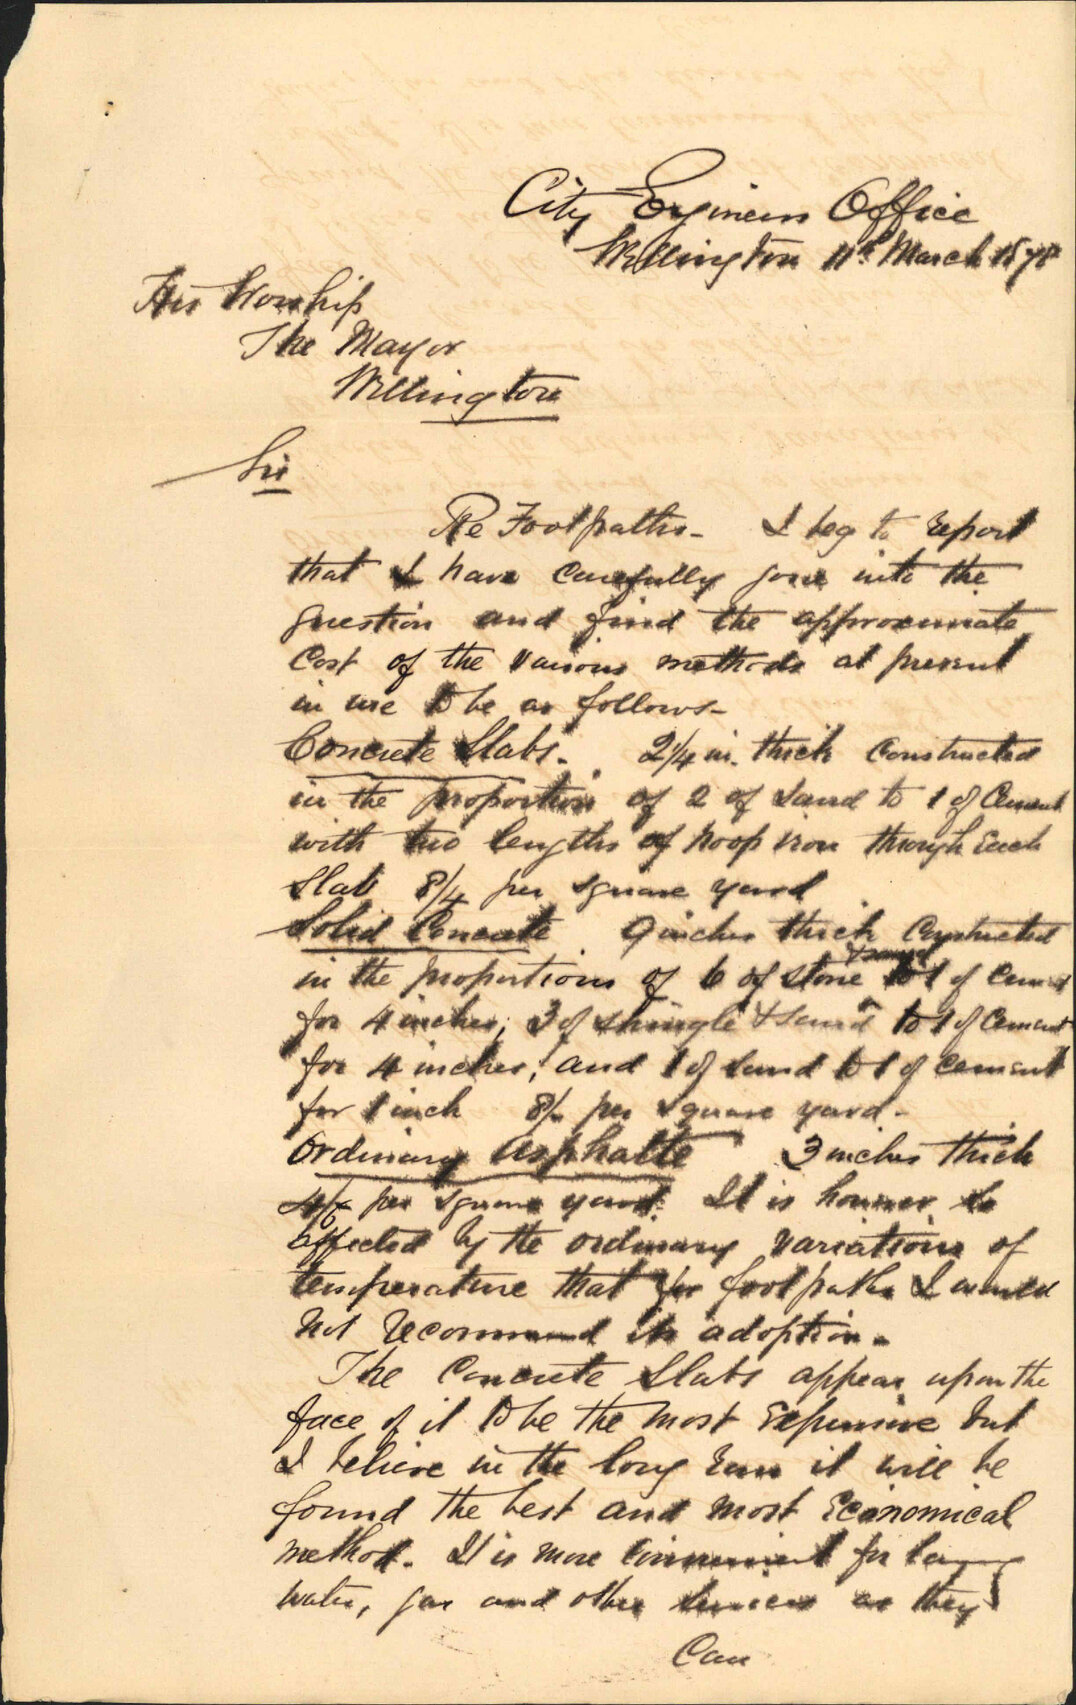 City Engineers Office
Wellington 11th March 1878
His Worship
The Mayor
Wellington
Sir
Re Footpaths - I beg to report
that I have carefully gone into the
question and find the approximate
cost of the various methods at present
in use to be as follows -
Concrete Slabs. 2 1/4 in. thick constructed
in the proportion of 2 of sand to 1 of Cement
with two lengths of hoop iron through each
Slab 8/4 per square yard
Solid Concrete 9 inches thick constructed
in the proportions of 6 of stone & sand to 1 of cement
for 4 inches; 3 of shingle & sand to 1 of cement
for 4 inches; and 1 of sand to 1 of cement
for 1 inch 8/- per square yard -
Ordinary Asphalte 3 inches thick
4/6 per square yard. It is however so
affected by the ordinary variations of
temperature that for footpaths I would
not recommend its adoption -
The Concrete Slabs appear upon the
face of it to be the most expensive but
I believe in the long run it will be
found the best and most economical
method. It is more convenient for laying
water, gas and other services as they
Can